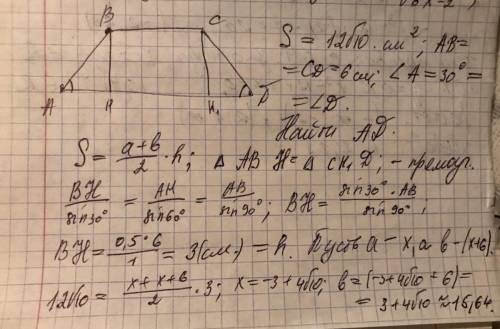 B C
A H H₁ D
S = 12√10 см²; AB=
=CD=6см; ∠A=30°=
=∠D.
Найти AD.
S = (a+b)/2 · h; Δ ABH = Δ CH₁D; - прямоуг.
BH/sin30° = AH/sin60° = AB/sin90°; BH = sin30°·AB/sin90°;
BH = 0,5·6/1 = 3(см.) = h. Пусть a - x, а b - (x+6).
12√10 = (x+x+6)/2 · 3; x=-3+4√10; b=(-3+4√10+6)=
= 3+4√10 ≈ 15,64.